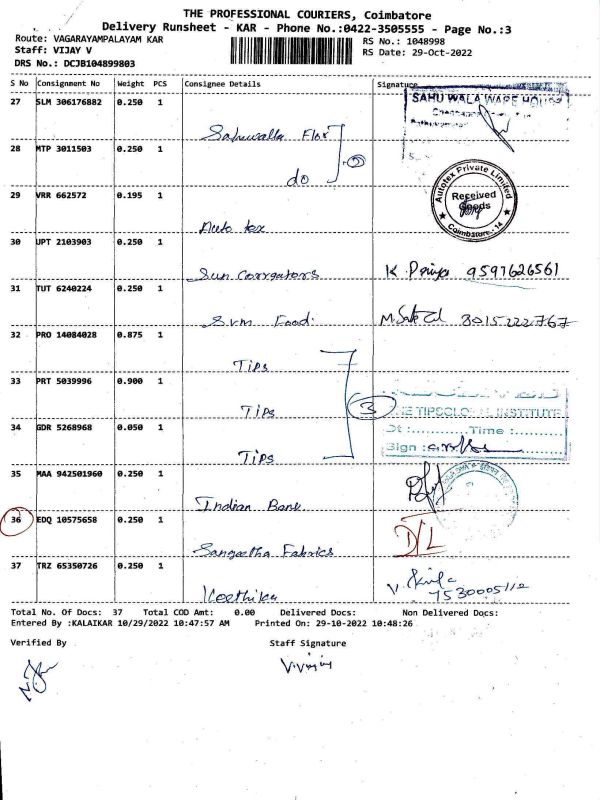 THE PROFESSIONAL COURIERS, Coimbatore
Delivery Runsheet - KAR - Phone No.:0422-3505555 - Page No.:3
Route: VAGARAYAMPALAYAM KAR
RS No.: 1048998
Staff: VIJAY V
RS Date: 29-Oct-2022
DRS No.: DCJB104899803
S No Consignment No Weight PCS Consignee Details Signature
27 SLM 306176882 0.250 1
SAHU WALA WARE HOUSE
28 MTP 3011503 0.250 1
do
29 VRR 662572 0.195 1
Autotex Private Limited
Received Goods
Coimbatore - 14
Auto tex
30 UPT 2103903 0.250 1
Sun Corrgators K. Priya 9597626561
31 TUT 6240224 0.250 1
Svm Food. 8015222767
32 PRO 14084028 0.875 1
Tips
33 PRT 5039996 0.900 1
Tips 3
34 GDR 5268968 0.050 1
Dt : Time :
Sign :
Tips
35 MAA 942501960 0.250 1
Indian Bank
36 EDQ 10575658 0.250 1
D/L
Sangeetha Fabrics
37 TRZ 65350726 0.250 1
Keethika 7530005112
Total No. Of Docs: 37 Total COD Amt: 0.00 Delivered Docs: Non Delivered Docs:
Entered By :KALAIKAR 10/29/2022 10:47:57 AM Printed On: 29-10-2022 10:48:26
Verified By Staff Signature